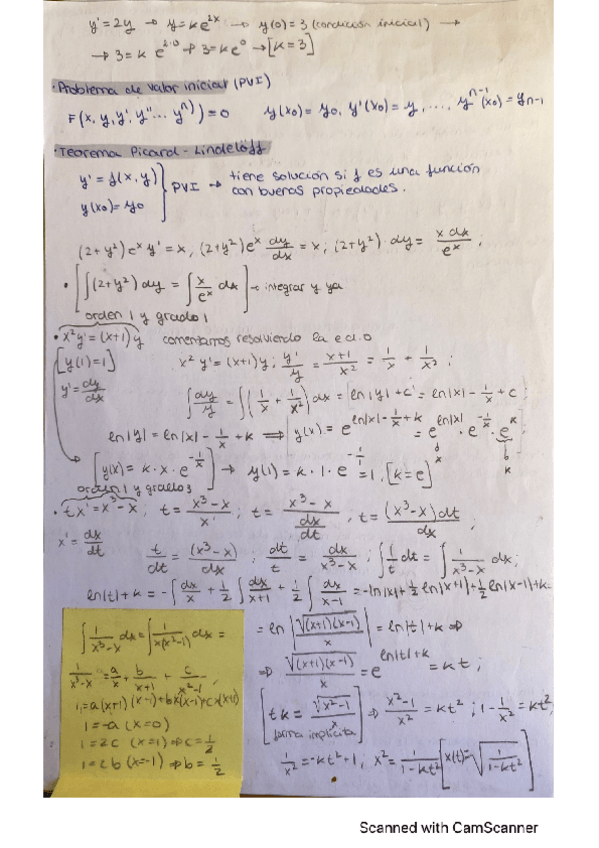 y' = 2y → y = k e^{2x} → y(0) = 3 (condición inicial) →
→ 3 = k e^{2·0} → 3 = k e^0 → [k = 3]
· Problema de valor inicial (PVI)
F(x, y, y', y''... y^{n)}) = 0 y(x0) = y0, y'(x0) = y, ..., y^{n-1}(x0) = y_{n-1}
· Teorema Picard - Lindelöff
y' = f(x, y)
y(x0) = y0
PVI → tiene solución si f es una función
con buenas propiedades.
(2+y²) e^x y' = x, (2+y²) e^x dy/dx = x ; (2+y²) · dy = x dx/e^x ;
· [∫(2+y²) dy = ∫ x/e^x dx] → integrar y ya
orden 1 y grado 1
· x²y' = (x+1) y comenzamos resolviendo la e.d.o
[y(1) = 1] x² y' = (x+1) y ; y'/y = x+1/x² = 1/x + 1/x² ;
y' = dy/dx ∫ dy/y = ∫(1/x + 1/x²) dx = ln|y| + c' = ln|x| - 1/x + c ;
ln|y| = ln|x| - 1/x + k ⇒ y(x) = e^{ln|x| - 1/x + k} = e^{ln|x|} · e^{-1/x} · e^k
x k
[y(x) = k · x · e^{-1/x}] → y(1) = k · 1 · e^{-1/1} = 1, [k = e]
orden 1 y grado 3
· t x' = x³ - x ; t = x³ - x/x' ; t = x³ - x/(dx/dt) , t = (x³ - x) dt/dx ;
x' = dx/dt t/dt = (x³ - x)/dx ; dt/t = dx/x³ - x ; ∫ 1/t dt = ∫ 1/x³ - x dx ;
ln|t| + k = -∫ dx/x + 1/2 ∫ dx/x+1 + 1/2 ∫ dx/x-1 = -ln|x| + 1/2 ln|x+1| + 1/2 ln|x-1| + k
∫ 1/x³-x dx = ∫ 1/x(x²-1) dx =
1/x³-x = a/x + b/x+1 + c/x²-1 ;
1 = a(x+1)(x-1) + bx(x-1) + cx(x+1)
1 = -a (x=0)
1 = 2c (x=1) ⇒ c = 1/2
1 = 2b (x=-1) ⇒ b = 1/2
= ln |√(x+1)(x-1)/x| = ln|t| + k ⇒
⇒ √(x+1)(x-1)/x = e^{ln|t| + k} = kt ;
[tk = √x²-1/x] ⇒ x²-1/x² = kt² ; 1 - 1/x² = kt² ;
forma implícita
1/x² = -kt² + 1, x² = 1/1-kt² [x(t) = √1/1-kt²]
Scanned with CamScanner